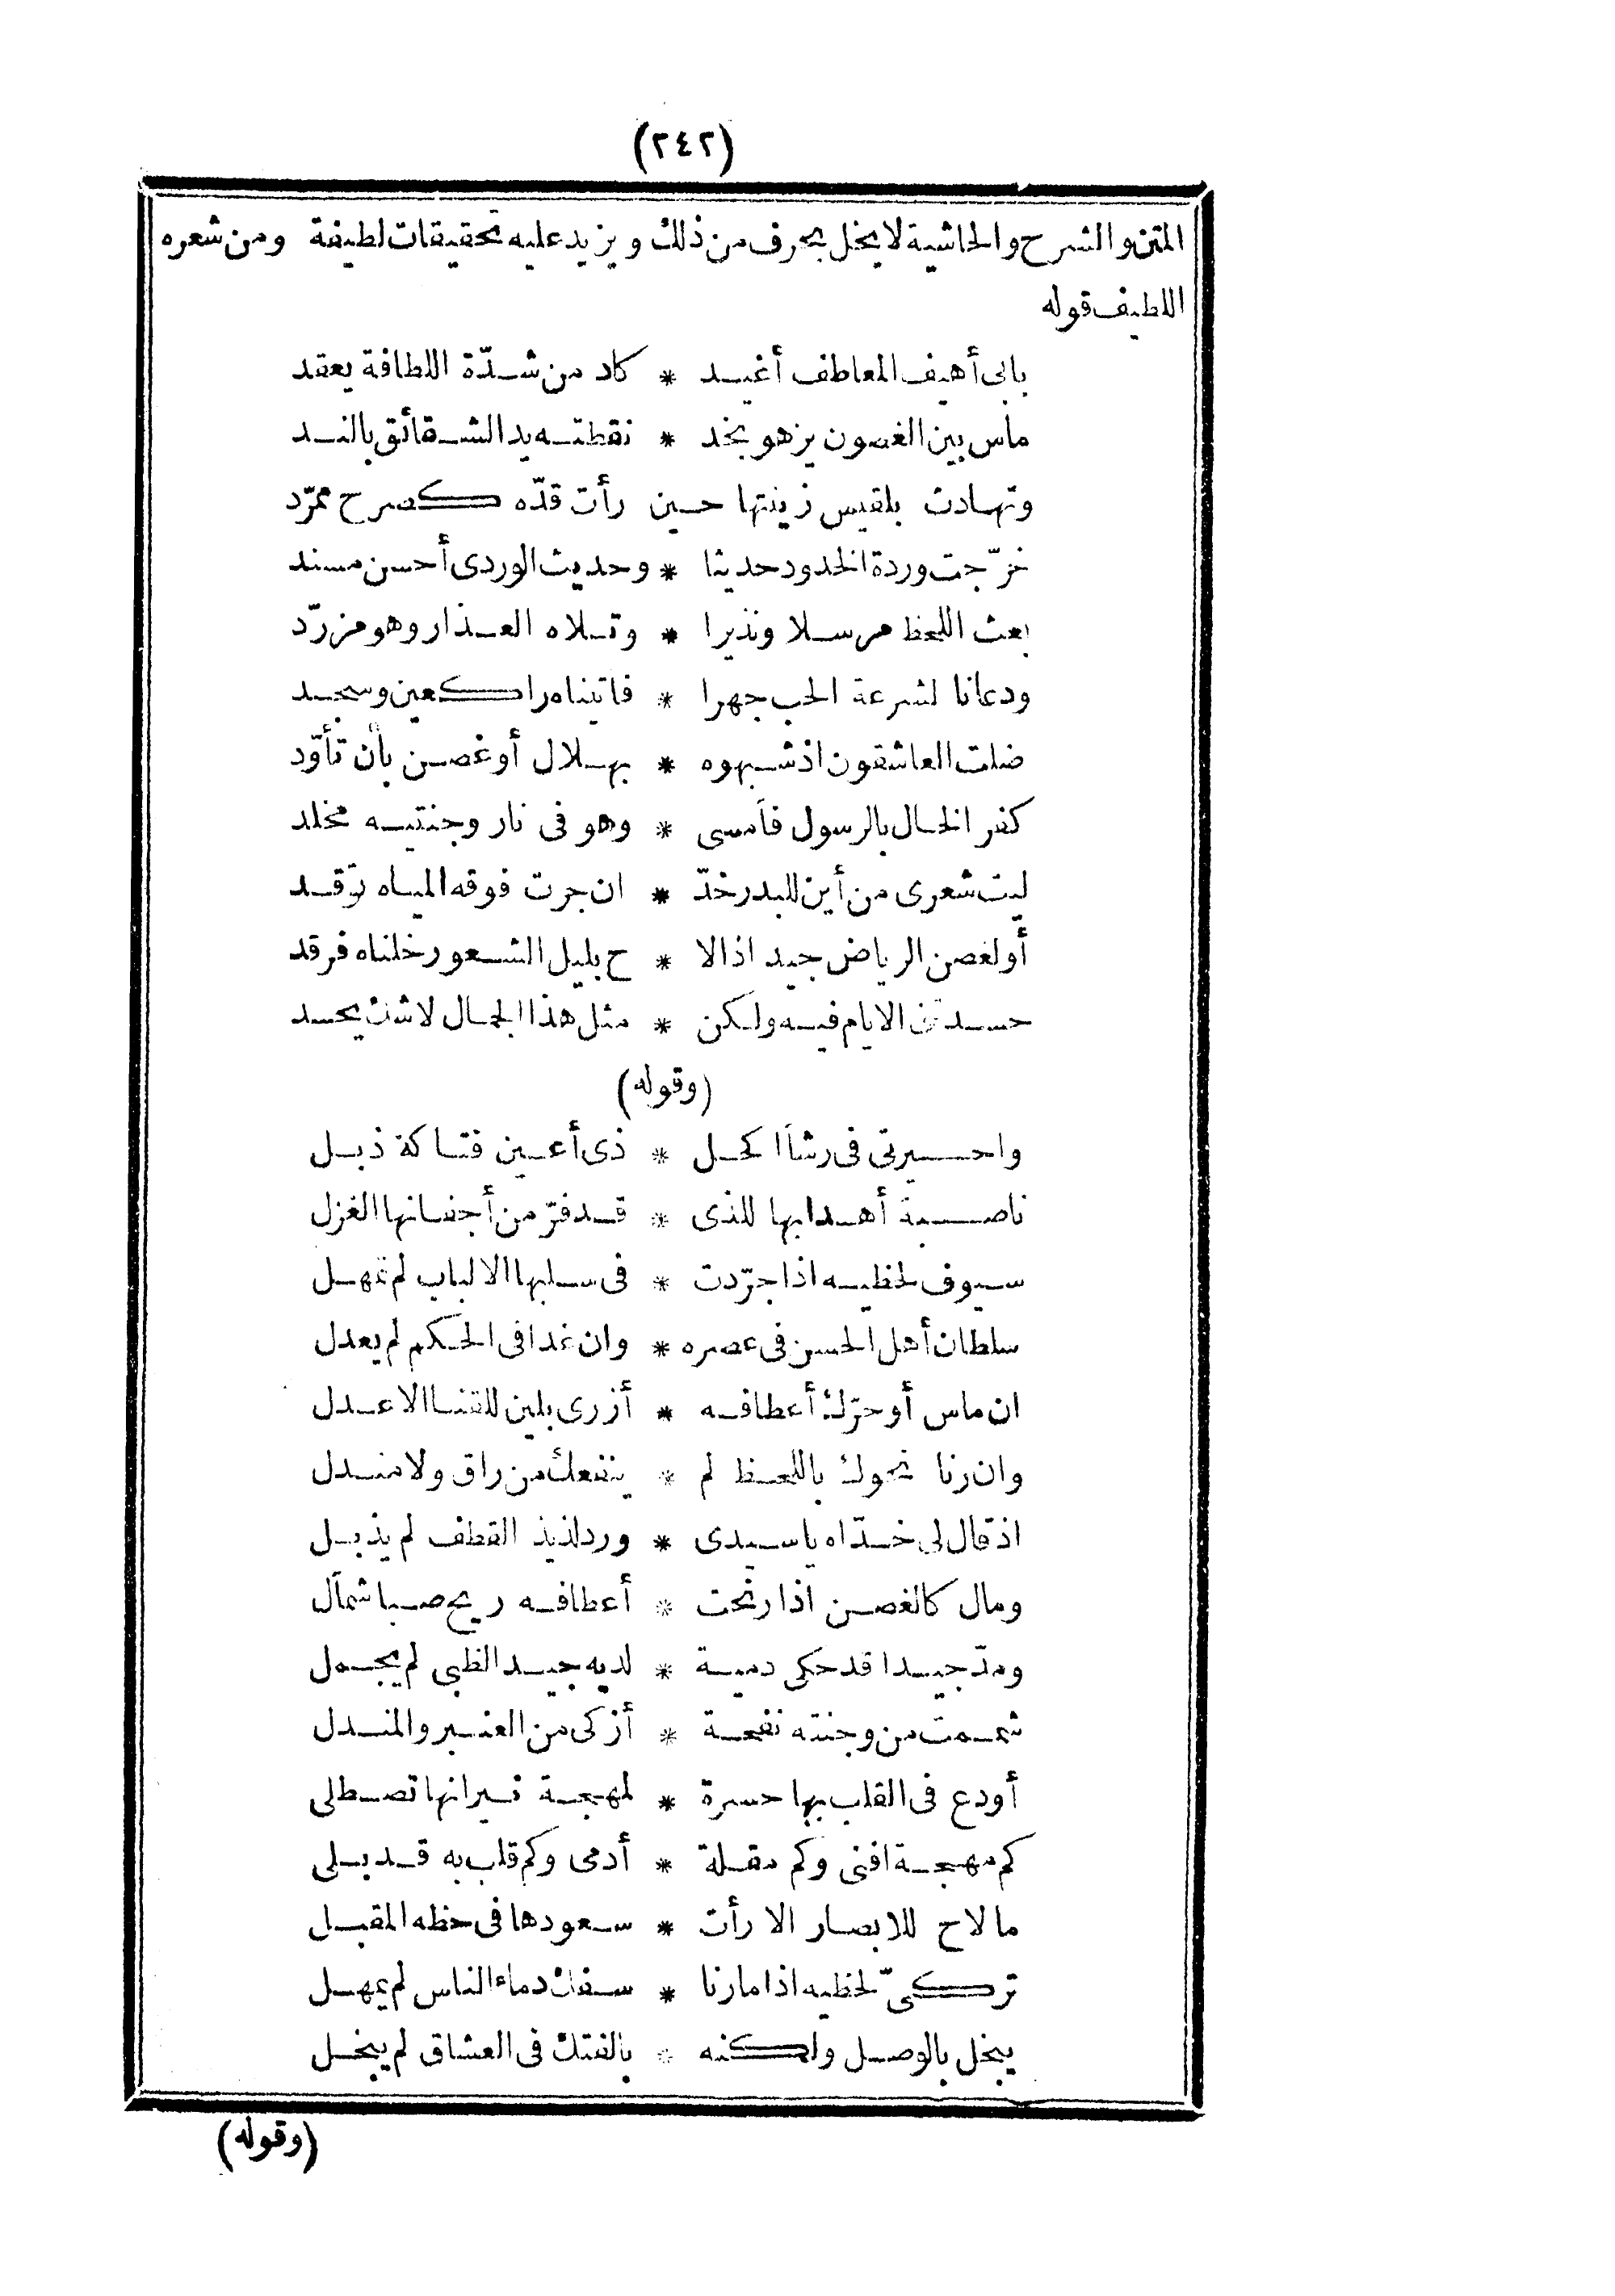 (٢٤٢)
المتن والشرح والحاشية لايخل بحرف من ذلك ويزيد عليه تحقيقات لطيفة ومن شعره
اللطيف قوله
بابى أهيف المعاطف أغيد * كاد من شدّة اللطافة يعقد
ماس بين الغصون يزهو بخد * نقطته يد الشقائق بالند
وتهادت بلقيس زينتها حين رأت قدّه كصرح ممرّد
خرّجت وردة الخدود حديثا * وحديث الوردى أحسن مسند
بعث اللحظ مرسلا ونذيرا * وتلاه العذار وهو مزرّد
ودعانا لشرعة الحب جهرا * فاتيناه راكعين وسجد
ضلت العاشقون اذ شبهوه * بهلال أو غصن بان تأوّد
كفر الخال بالرسول فأمسى * وهو فى نار وجنتيه مخلد
ليت شعرى من أين للبدر خدّ * ان جرت فوقه المياه توقد
أو لغصن الرياض جيد اذا لا * ح بليل الشعور خلناه فرقد
حسدتنى الايام فيه ولكن * مثل هذا الجمال لاشك يحسد
(وقوله)
واحيرتى فى رشأ اكحل * ذى أعين فتاكة ذبل
ناصبة أهدابها للذى * قد فرّ من أجفانها الغزل
سيوف لحظيه اذا جرّدت * فى سلبها الالباب لم تمهل
سلطان أهل الحسن فى عصره * وان غدا فى الحكم لم يعدل
ان ماس أو حرّك أعطافه * أزرى بلين للقنا الاعدل
وان رنا نحوك باللحظ لم * ينفعك من راق ولا مندل
اذ قال لى خدّاه ياسيدى * ورد لذيذ القطف لم يذبل
ومال كالغصن اذا رنحت * أعطافه ريح صبا شمأل
ومدّ جيدا قد حكى دمية * لديه جيد الظبى لم يجمل
شممت من وجنته نفحة * أزكى من العنبر والمندل
أودع فى القلب بها حسرة * لمهجة نيرانها تصطلى
كم مهجة افنى وكم مقلة * أدمى وكم قلب به قد بلى
ما لاح للابصار الا رأت * سعودها فى حظه المقبل
تركىّ لحظيه اذا ما رنا * سفاك دماء الناس لم يمهل
يبخل بالوصل ولكنه * بالفتك فى العشاق لم يبخل
(وقوله)